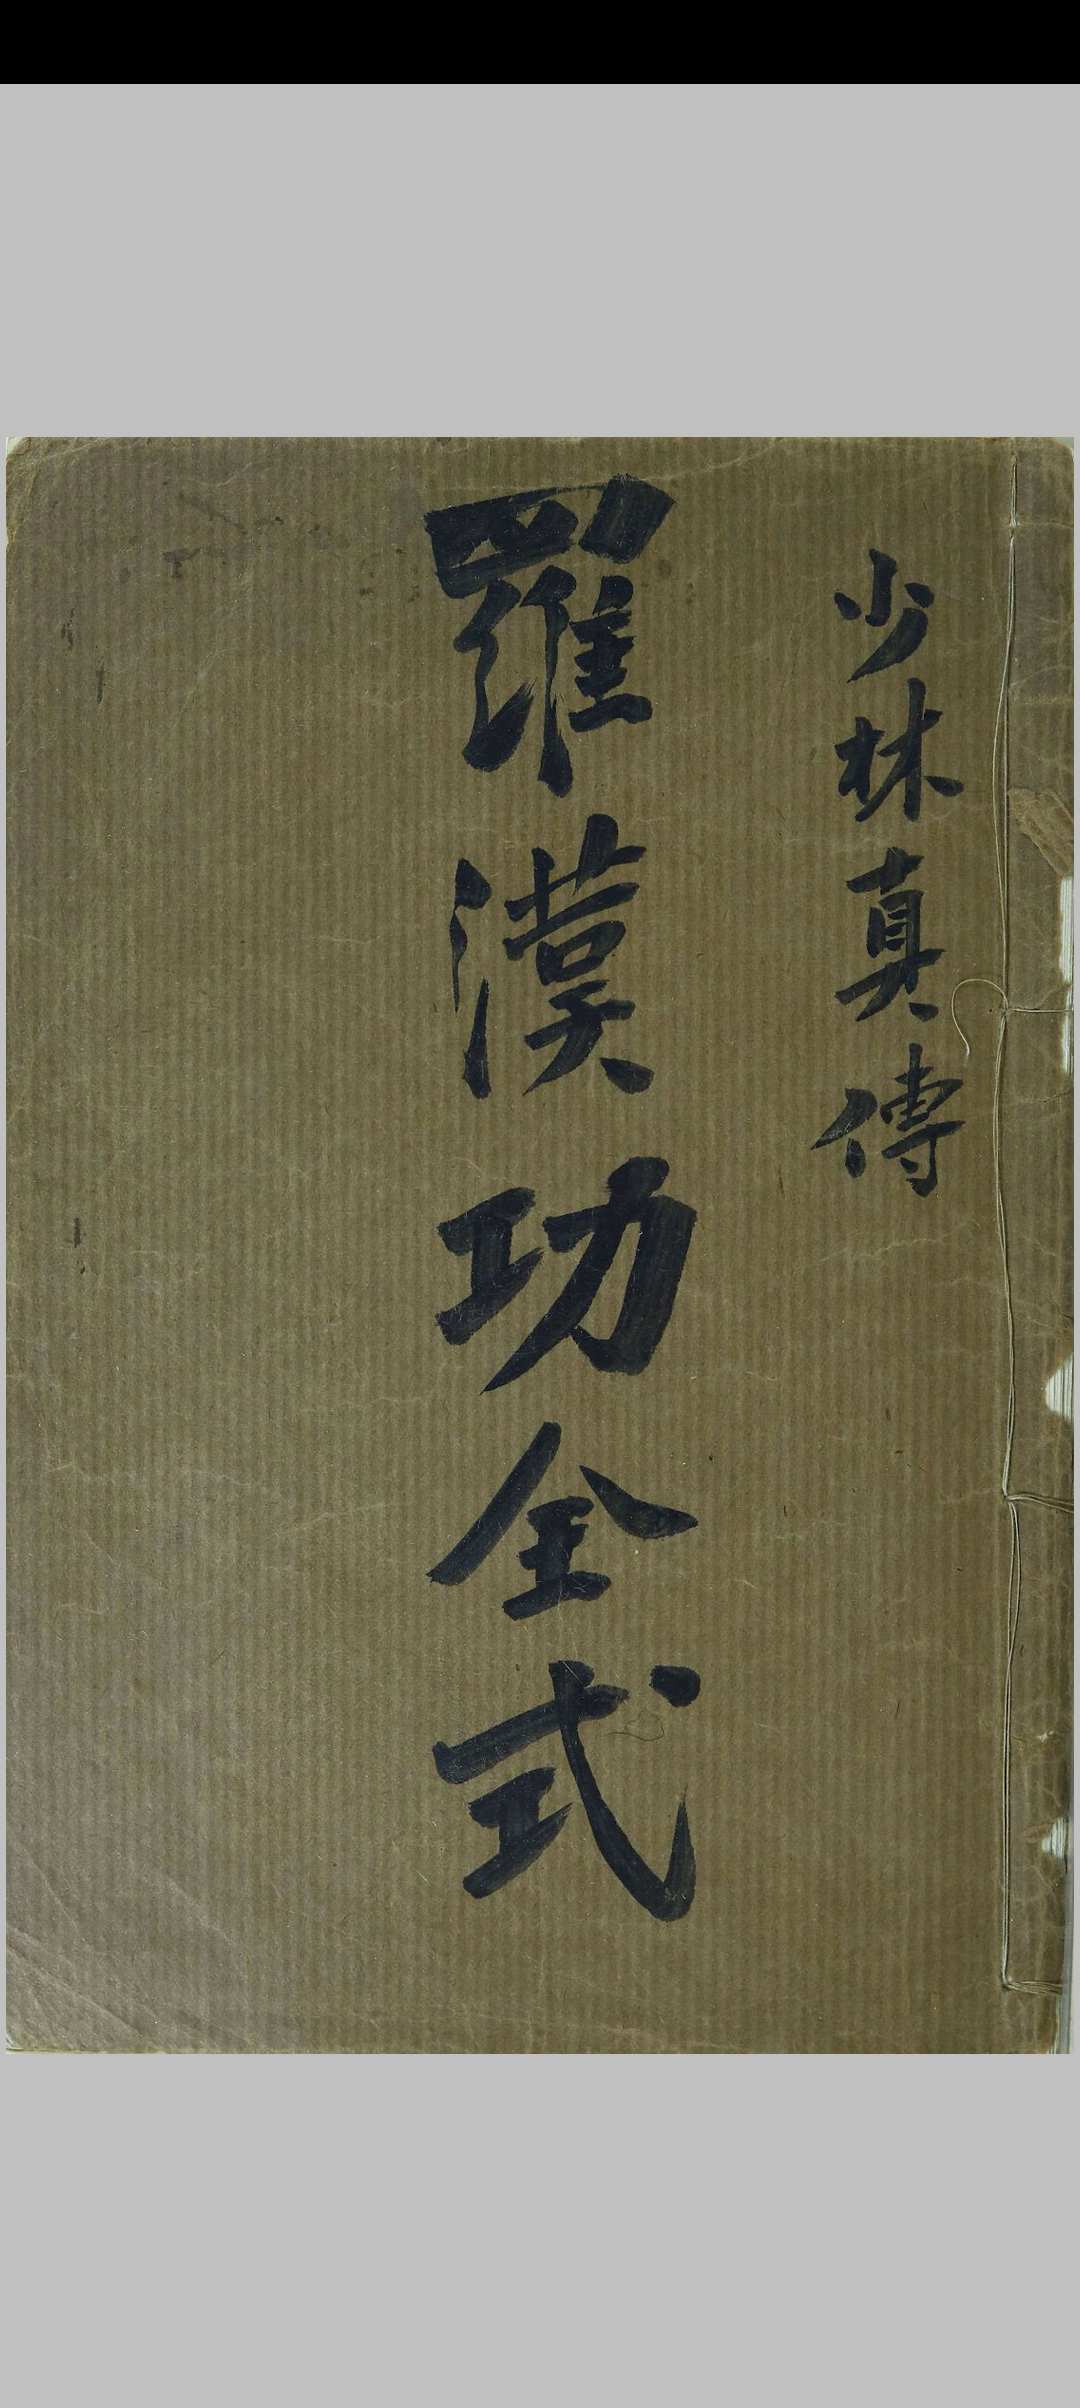 少林真傳
羅漢功全式